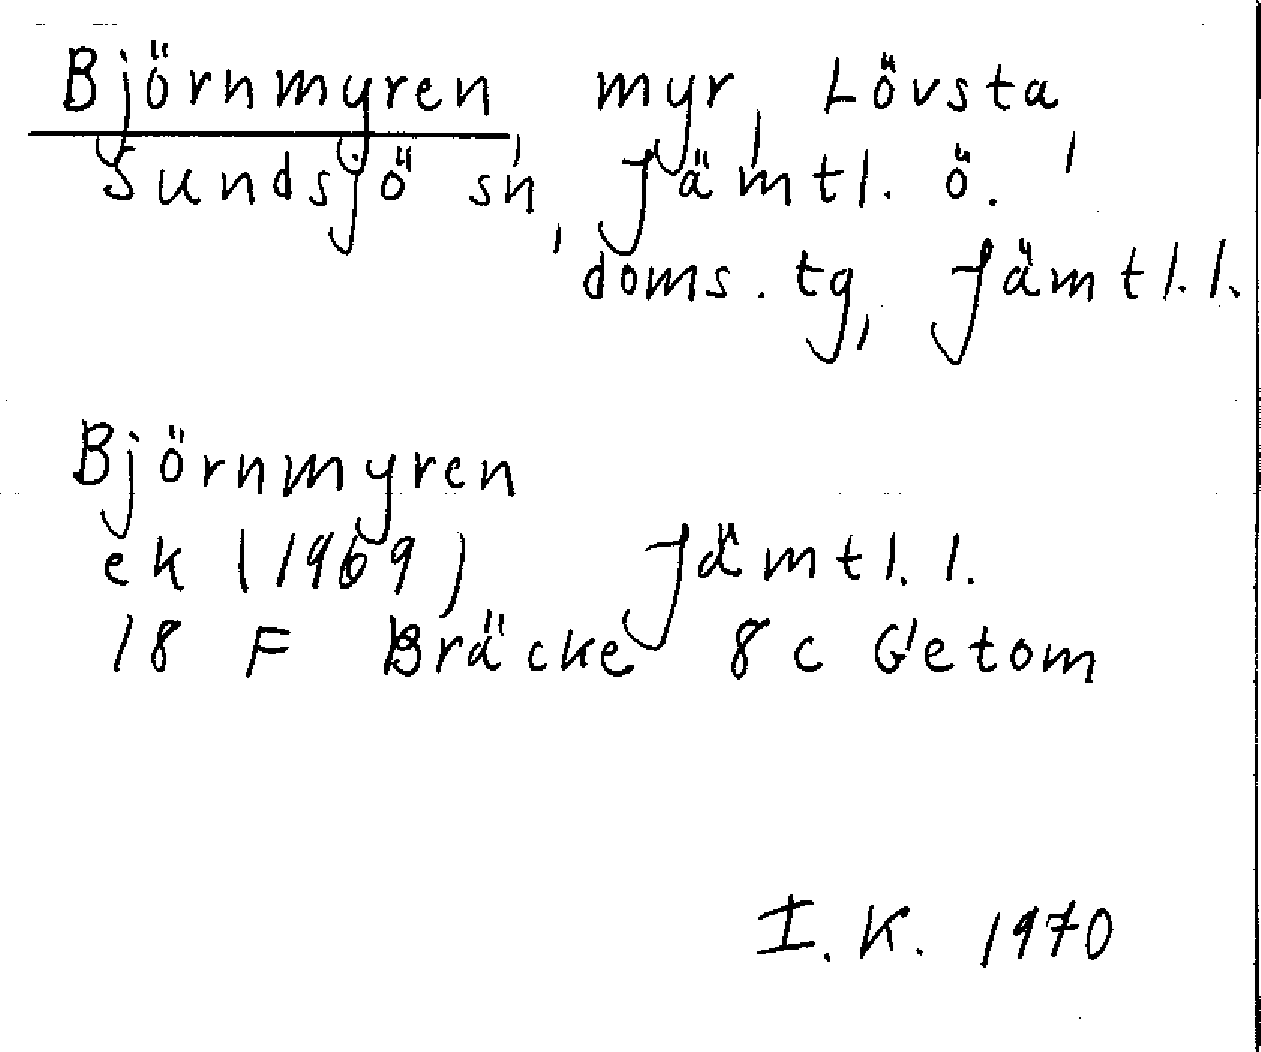 Björnmyren, myr, Lövsta,
Sundsjö sn, Jämtl. ö.
doms. tg, Jämtl. l.
Björnmyren
ek (1969) Jämtl. l.
18 F Bräcke 8 c Getom
I. K. 1970